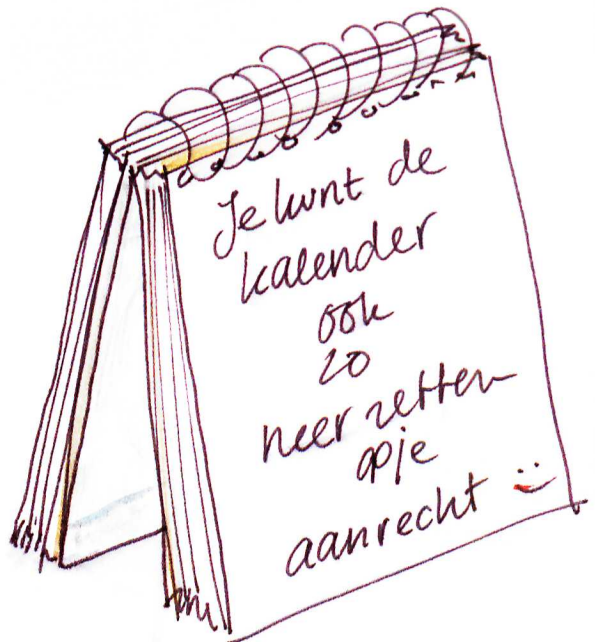 Je kunt de
kalender
ook
zo
neer zetten
op je
aanrecht